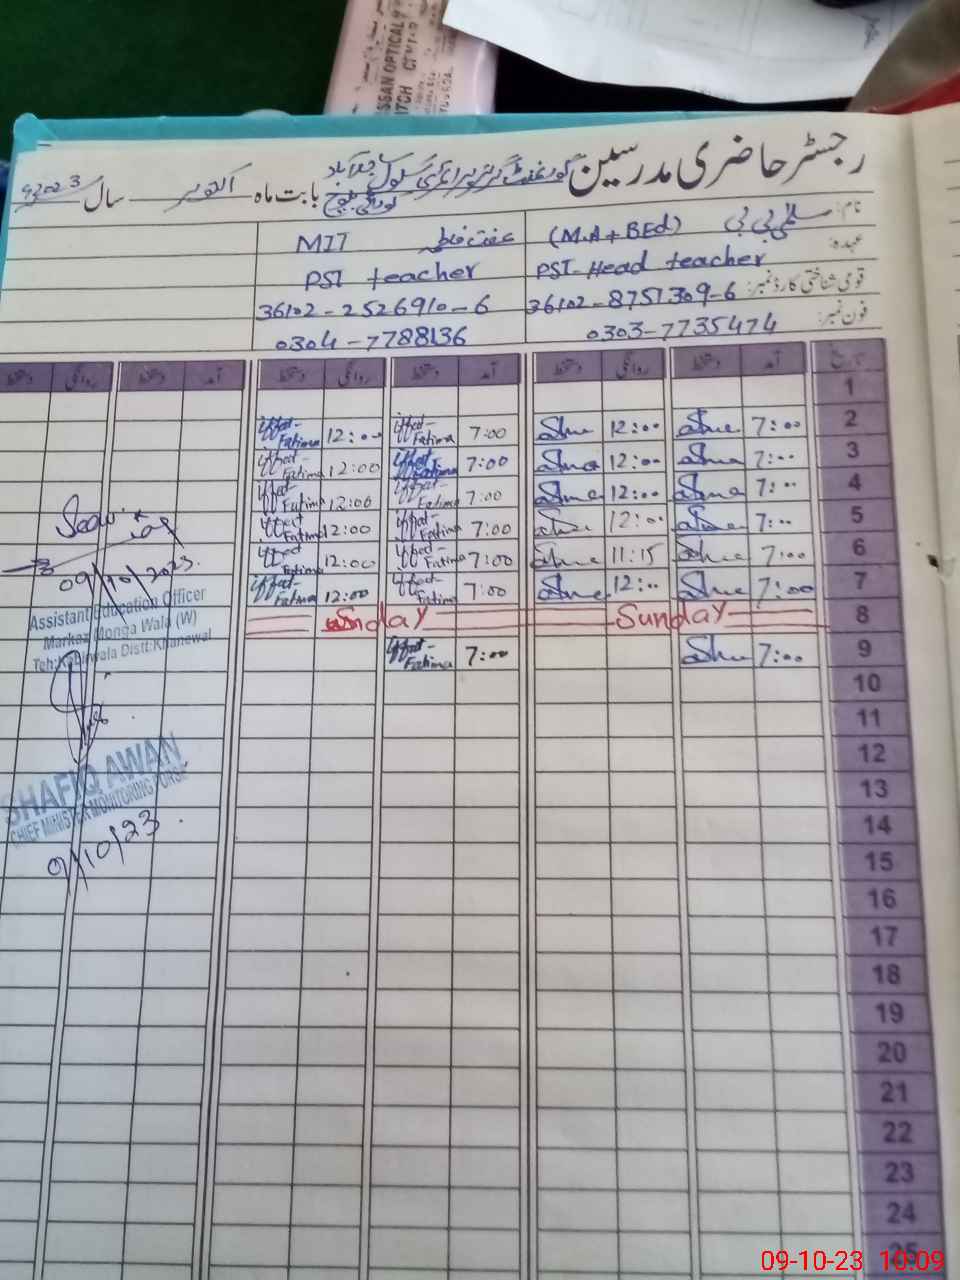 SSAN OPTICAL
رجسٹر حاضری مدرسین گورنمنٹ گرلز پرائمری سکول
بابت ماہ اکتوبر سال 2023ء
نام: سلمیٰ بی بی (M.A + BEd) عفت فاطمہ MIT
عہدہ: PST-Head teacher PST teacher
قومی شناختی کارڈ نمبر: 36102-8751309-6 36102-2526910-6
فون نمبر: 0303-7735474 0304-7788136
تاریخ آمد دستخط روانگی دستخط آمد دستخط روانگی دستخط آمد دستخط روانگی دستخط
1
2 7:00 12:00 7:00 Iffat Fatima 12:00 Iffat Fatima
3 7:00 12:00 7:00 Iffat Fatima 12:00 Iffat Fatima
4 7:00 12:00 7:00 Iffat Fatima 12:00 Iffat Fatima
5 7:00 12:00 7:00 Iffat Fatima 12:00 Iffat Fatima
6 7:00 11:15 7:00 Iffat Fatima 12:00 Iffat Fatima
7 7:00 12:00 7:00 Iffat Fatima 12:00 Iffat Fatima
8 Sunday Sunday
9 7:00 7:00 Iffat Fatima
10
11
12
13
14
15
16
17
18
19
20
21
22
23
24
25
09/10/2023
Assistant Education Officer
Markaz Monga Wala (W)
Teh: Kabirwala Distt: Khanewal
SHAFIQ AWAN
CHIEF MINISTER MONITORING FORCE
9/10/23
09-10-23 10:09